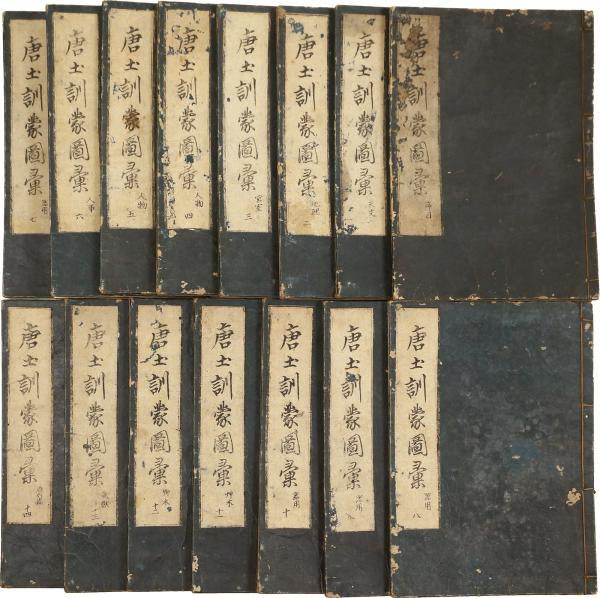 唐土訓蒙圖彙
序目
唐土訓蒙圖彙
天文 一
唐土訓蒙圖彙
地理 二
唐土訓蒙圖彙
宮室 三
唐土訓蒙圖彙
人物 四
唐土訓蒙圖彙
人物 五
唐土訓蒙圖彙
人事 六
唐土訓蒙圖彙
器用 七
唐土訓蒙圖彙
器用 八
唐土訓蒙圖彙
器用
唐土訓蒙圖彙
器用 十
唐土訓蒙圖彙
艸木 十一
唐土訓蒙圖彙
艸木 十二
唐土訓蒙圖彙
十三
唐土訓蒙圖彙
十四